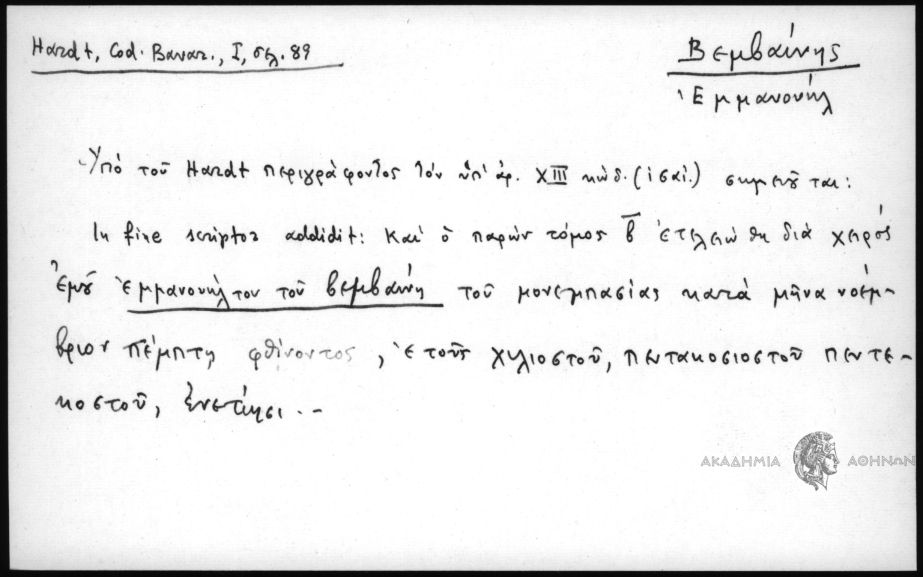 Hardt, Cod. Bavar., I, σελ. 89
Βεμβαίνης
Ἐμμανουήλ
Ὑπό τοῦ Hardt περιγράφοντος τόν ὑπ' ἀρ. XIII κώδ. (ἰσαί.) σημειοῦται:
In fine scriptor addidit: Καί ὁ παρών τόμος β̅ ἐτελειώθη διά χειρός
ἐμοῦ Ἐμμανουήλ του τοῦ βεμβαίνη τοῦ μονεμπασίας κατά μῆνα νοέμ-
βριον πέμπτῃ φθίνοντος, ἔτους χιλιοστοῦ, πεντακοσιοστοῦ πεντε-
κοστοῦ, ἐνετίῃσι .-
ΑΚΑΔΗΜΙΑ ΑΘΗΝΩΝ